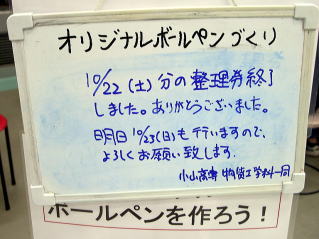 オリジナルボールペンづくり
10/22（土）分の整理券終了
しました。ありがとうございました。
明日10/23(日)も行いますので、
よろしくお願い致します。
小山高専 物質工学科一同
ボールペンを作ろう！